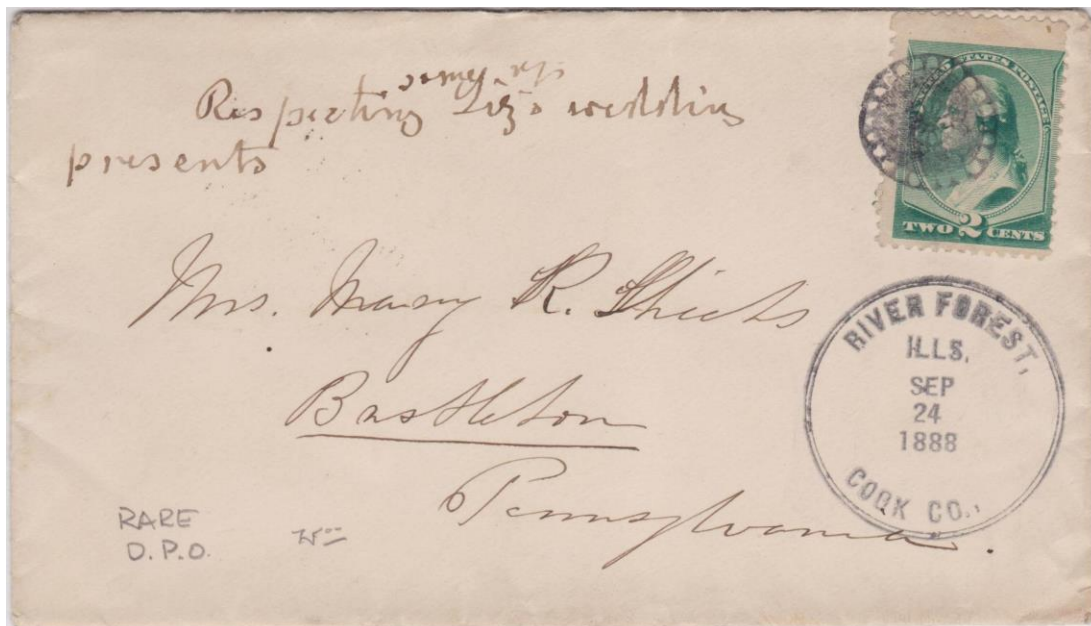 some of
Respecting Liz's wedding
presents
STATES POSTAGE
TWO 2 CENTS
Mrs. Mary R.
Bustleton
Pennsylvania.
RIVER FOREST,
ILLS.
SEP
24
1888
COOK CO.,
RARE
D.P.O.